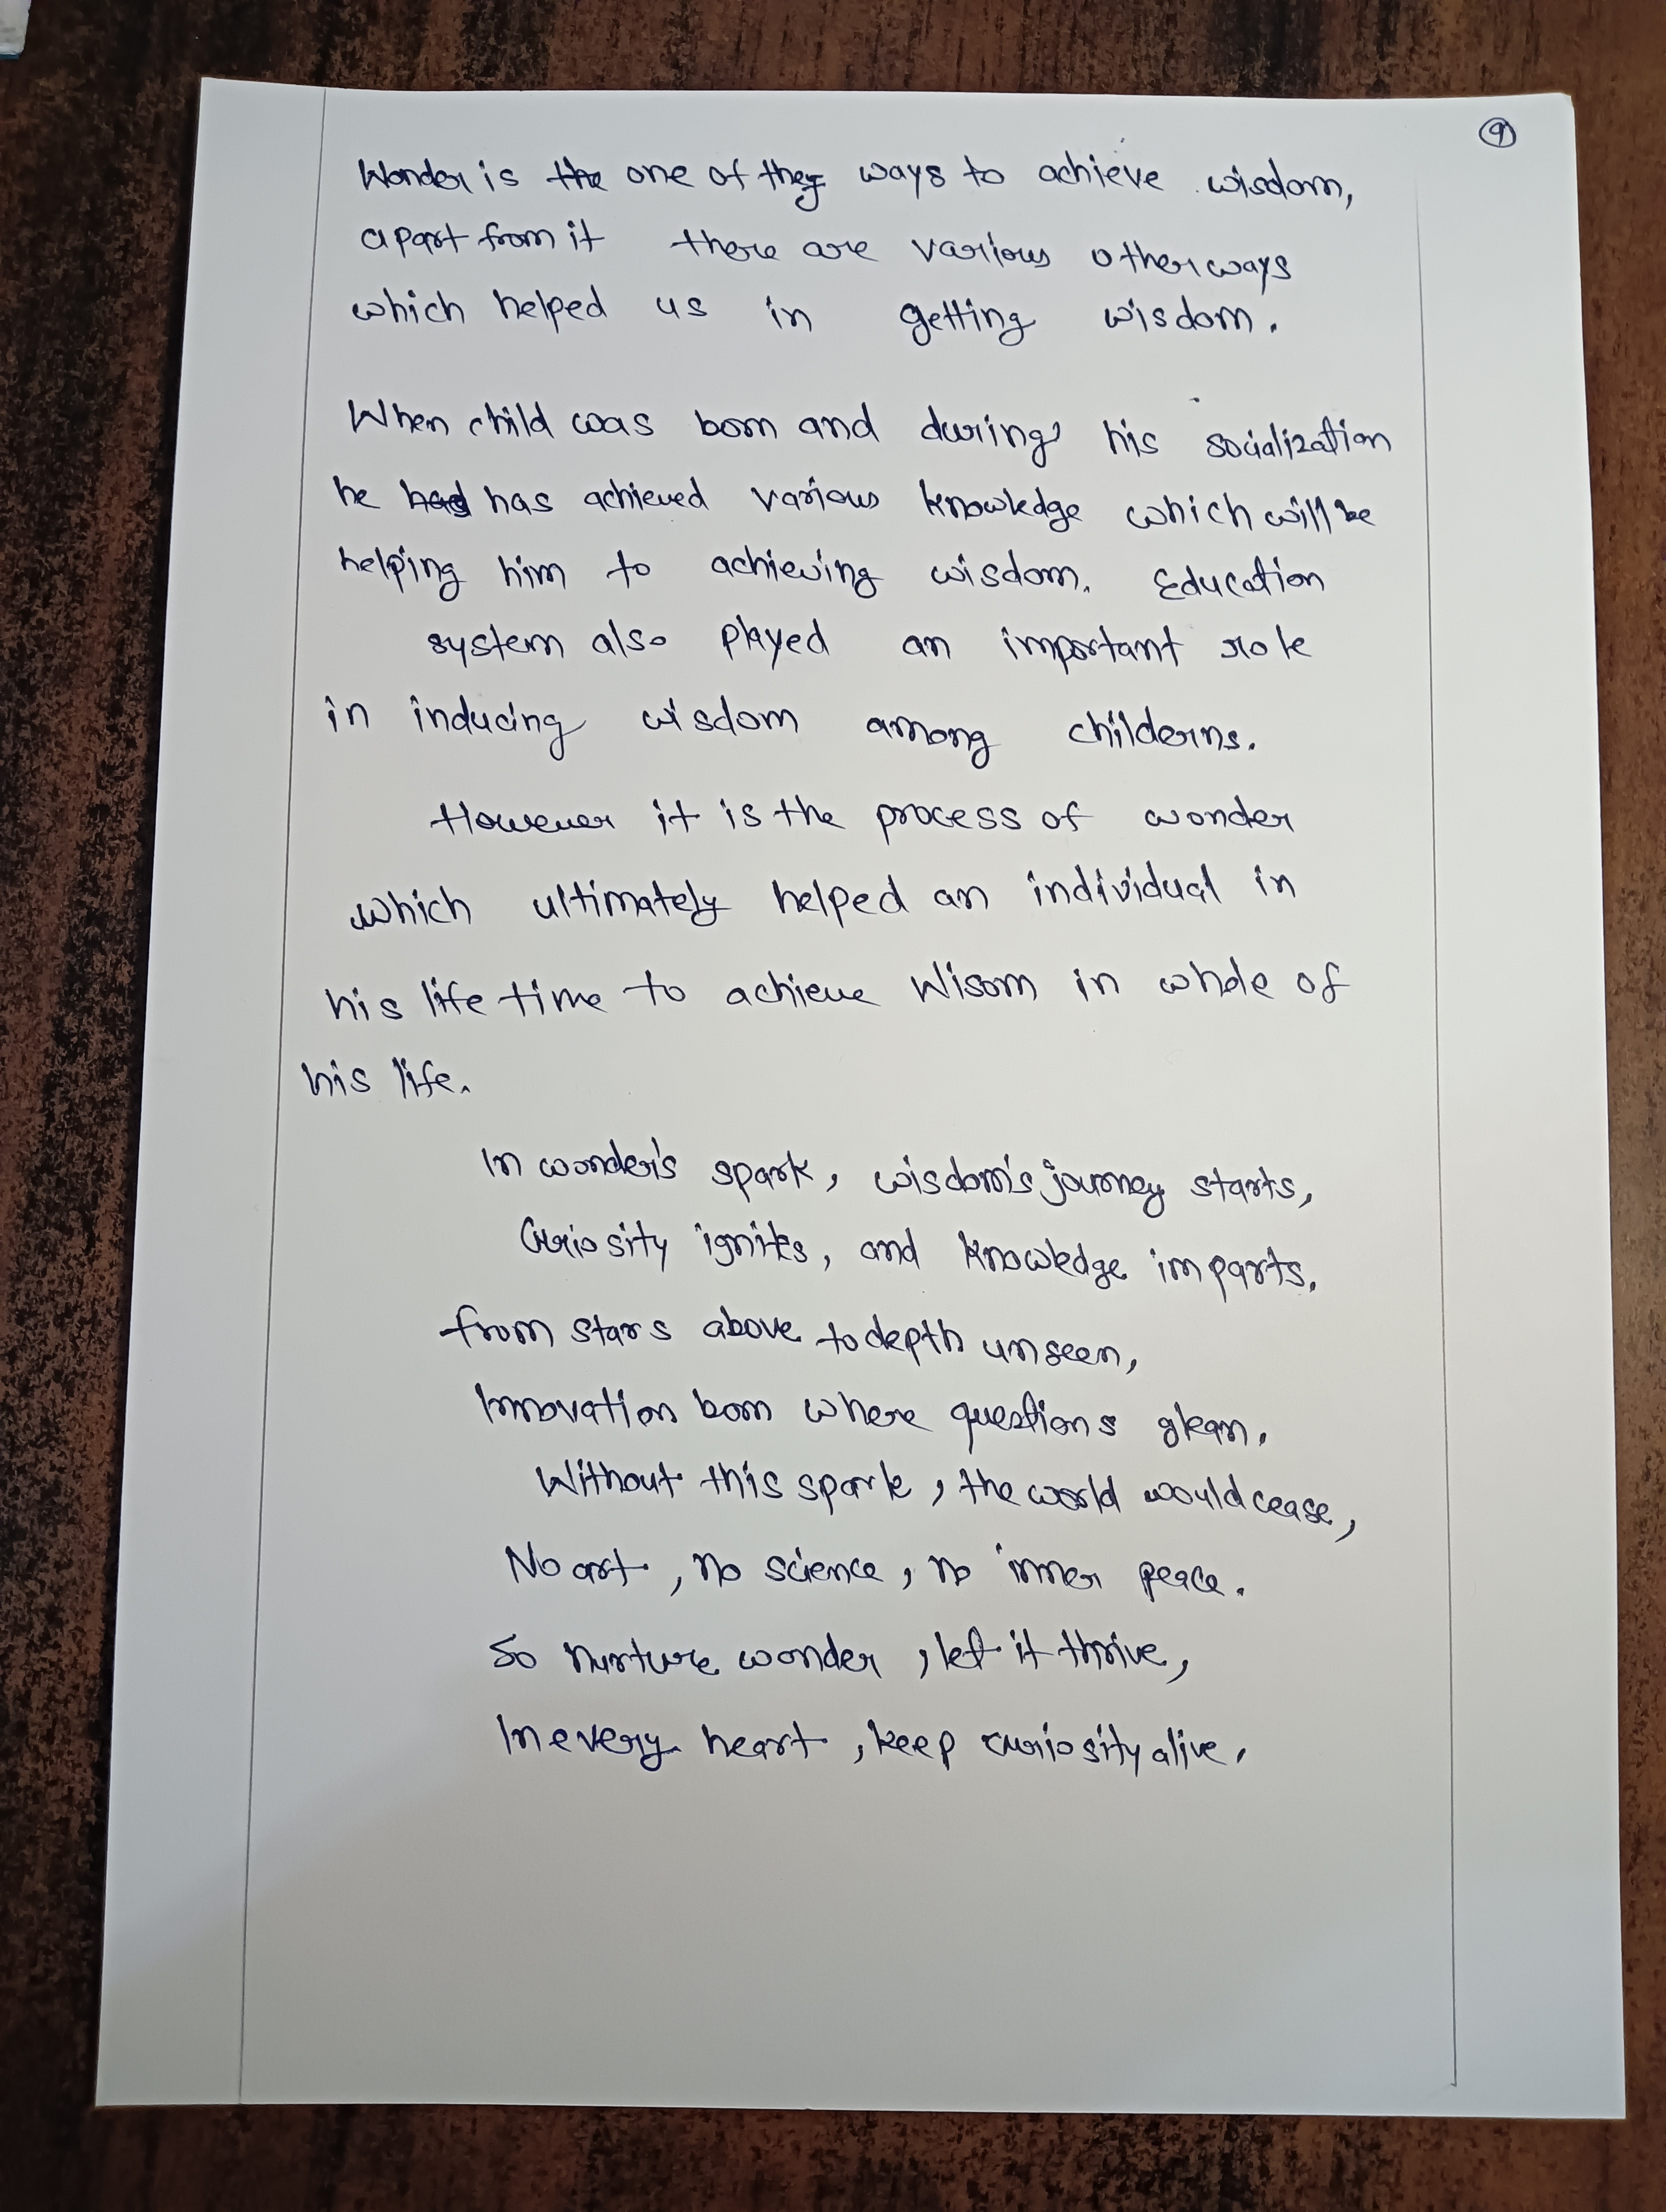 9
Wonder is the one of they ways to achieve wisdom,
apart from it there are various other ways
which helped us in getting wisdom.
When child was born and during his socialization
he had has achieved various knowledge which will be
helping him to achieving wisdom. Education
system also played an important role
in inducing wisdom among childerns.
However it is the process of wonder
which ultimately helped an individual in
his life time to achieve Wisom in whole of
his life.
In wonder's spark, wisdom's journey starts,
Curiosity ignites, and knowledge imparts.
from stars above to depth unseen,
Innovation born where questions glean.
Without this spark, the world would cease,
No art, no science, no inner peace.
So nurture wonder, let it thrive,
In every heart, keep curiosity alive.